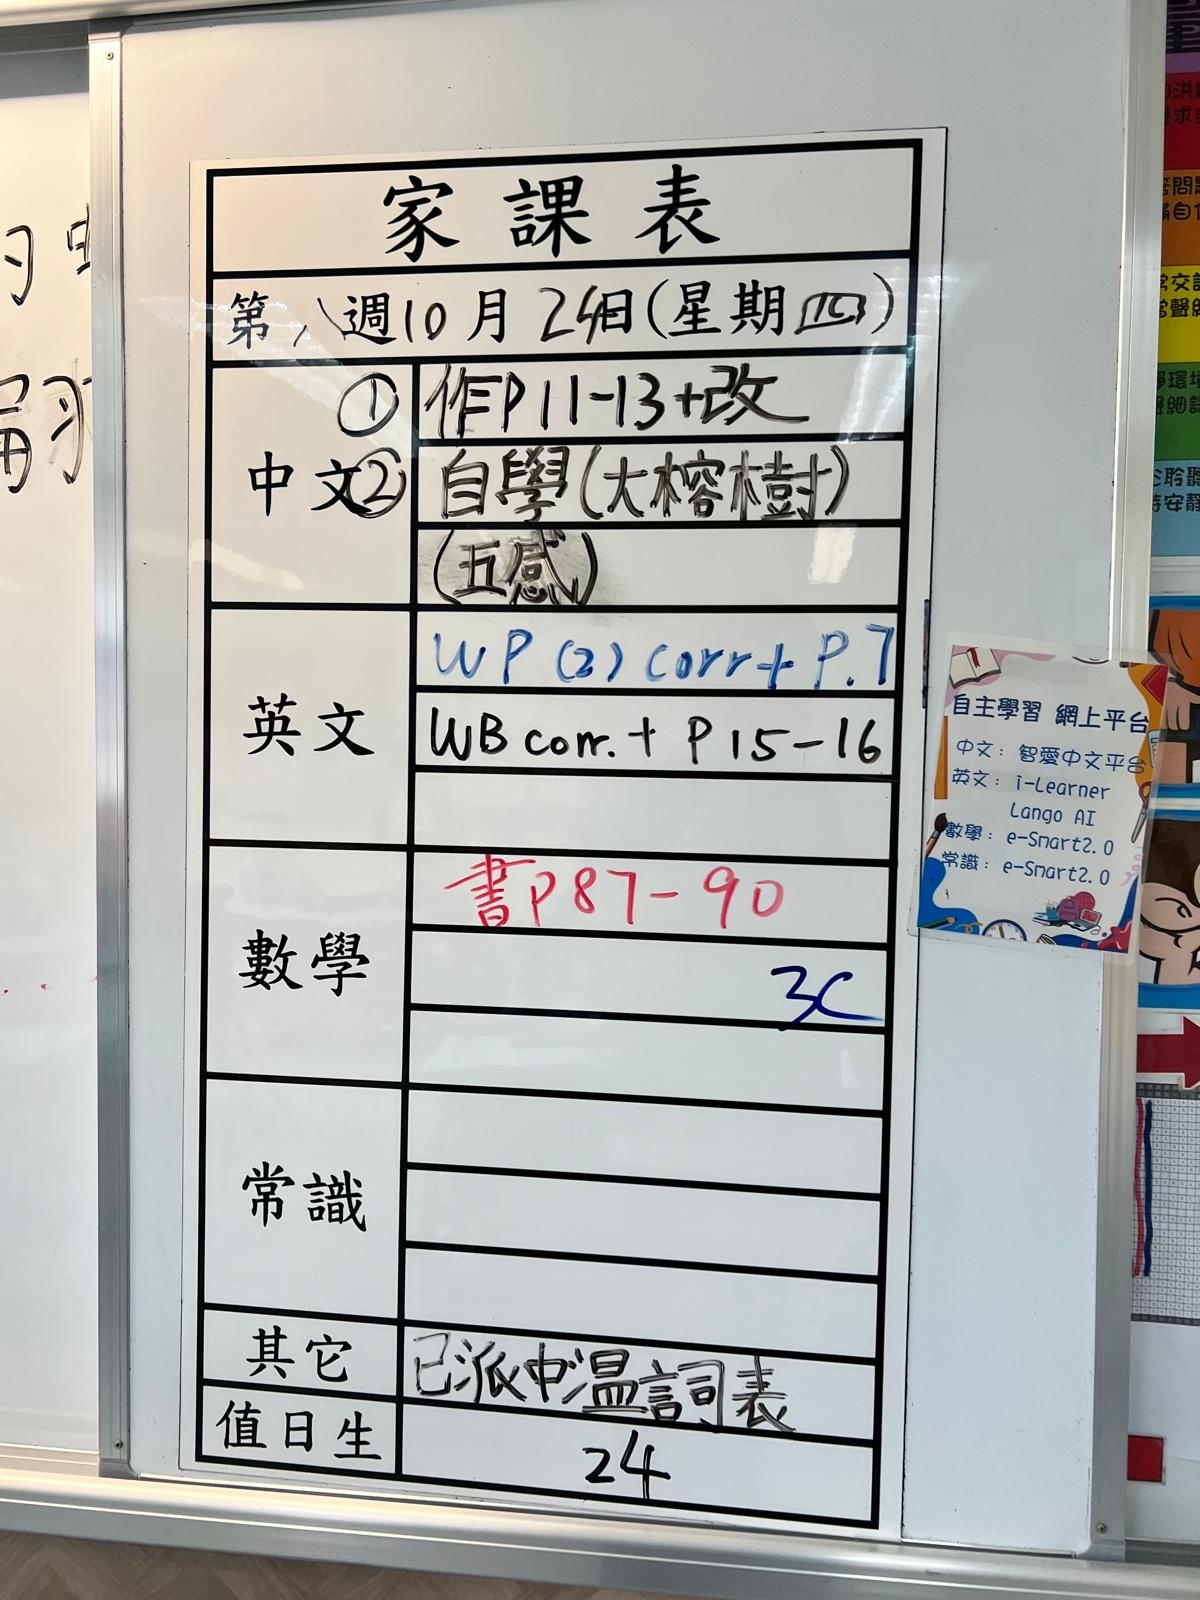 家課表
第八週10月24日(星期四)
中文
① 作P11-13+改
② 自學(大榕樹)
(五感)
英文
WP (2) corr + P.7
WB corr. + P 15-16
數學
書P87-90
3C
常識
其它
已派中溫詞表
值日生
24
自主學習 網上平台
中文: 智愛中文平台
英文: i-Learner
Lango AI
數學: e-Smart2.0
常識: e-Smart2.0